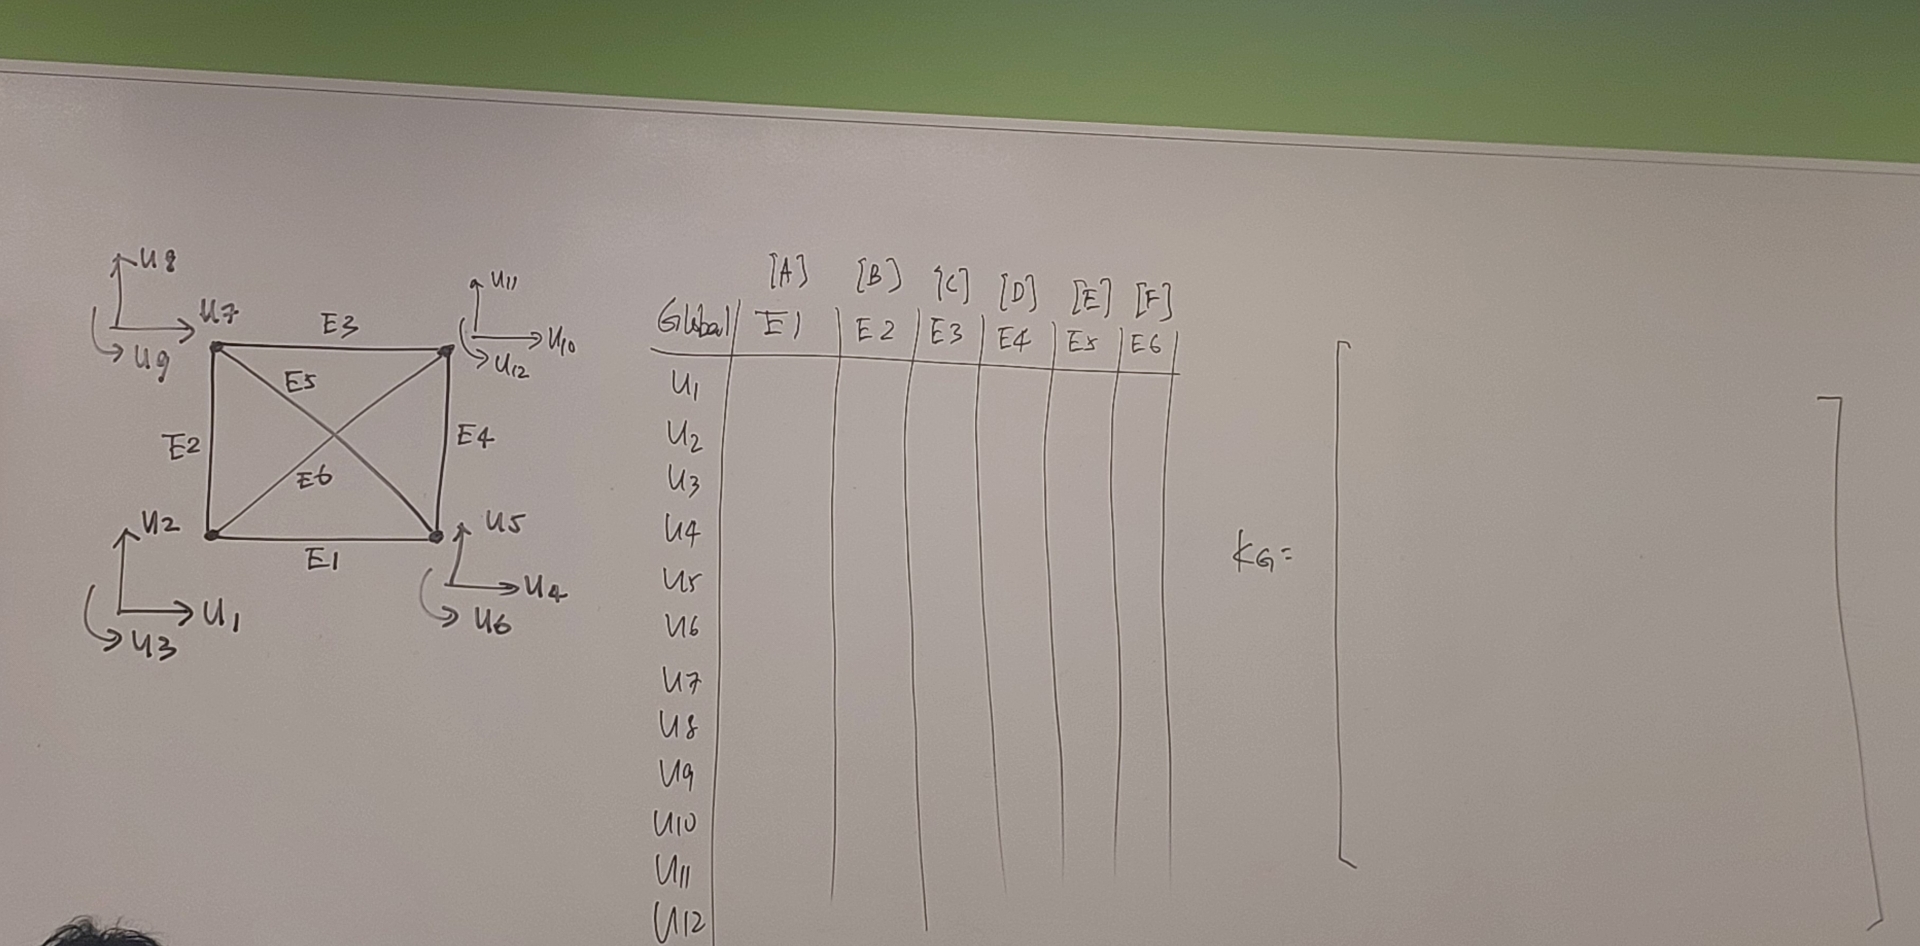 U8
U7
U9
E3
U11
U10
U12
E5
E2
E4
E6
U2
U1
U3
E1
U5
U4
U6
[A] [B] [C] [D] [E] [F]
Global E1 E2 E3 E4 E5 E6
U1
U2
U3
U4
U5
U6
U7
U8
U9
U10
U11
U12
KG=